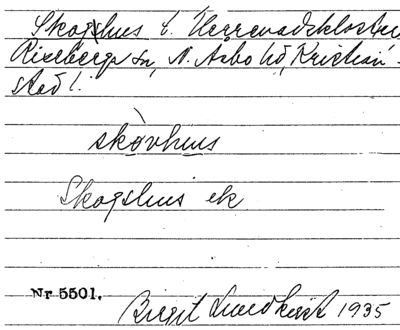 Skogshus t. Herrevadskloster
Riseberga sn, N. Åsbo hd, Kristian-
stad l.
skòvhus
Skogshus ek
Nr 5501. Birgit Lundkvist 1935